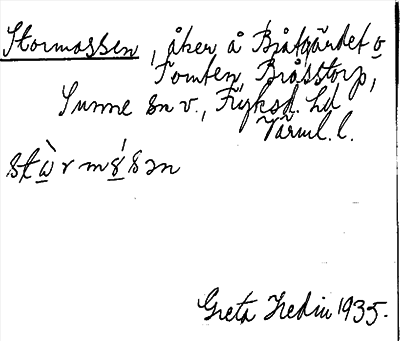 Stormossen, åker å Bjåtgärdet o
Tomten, Bråsstorp,
Sunne sn v., Fryksd. hd
Värml. l.
Greta Hedin 1935.